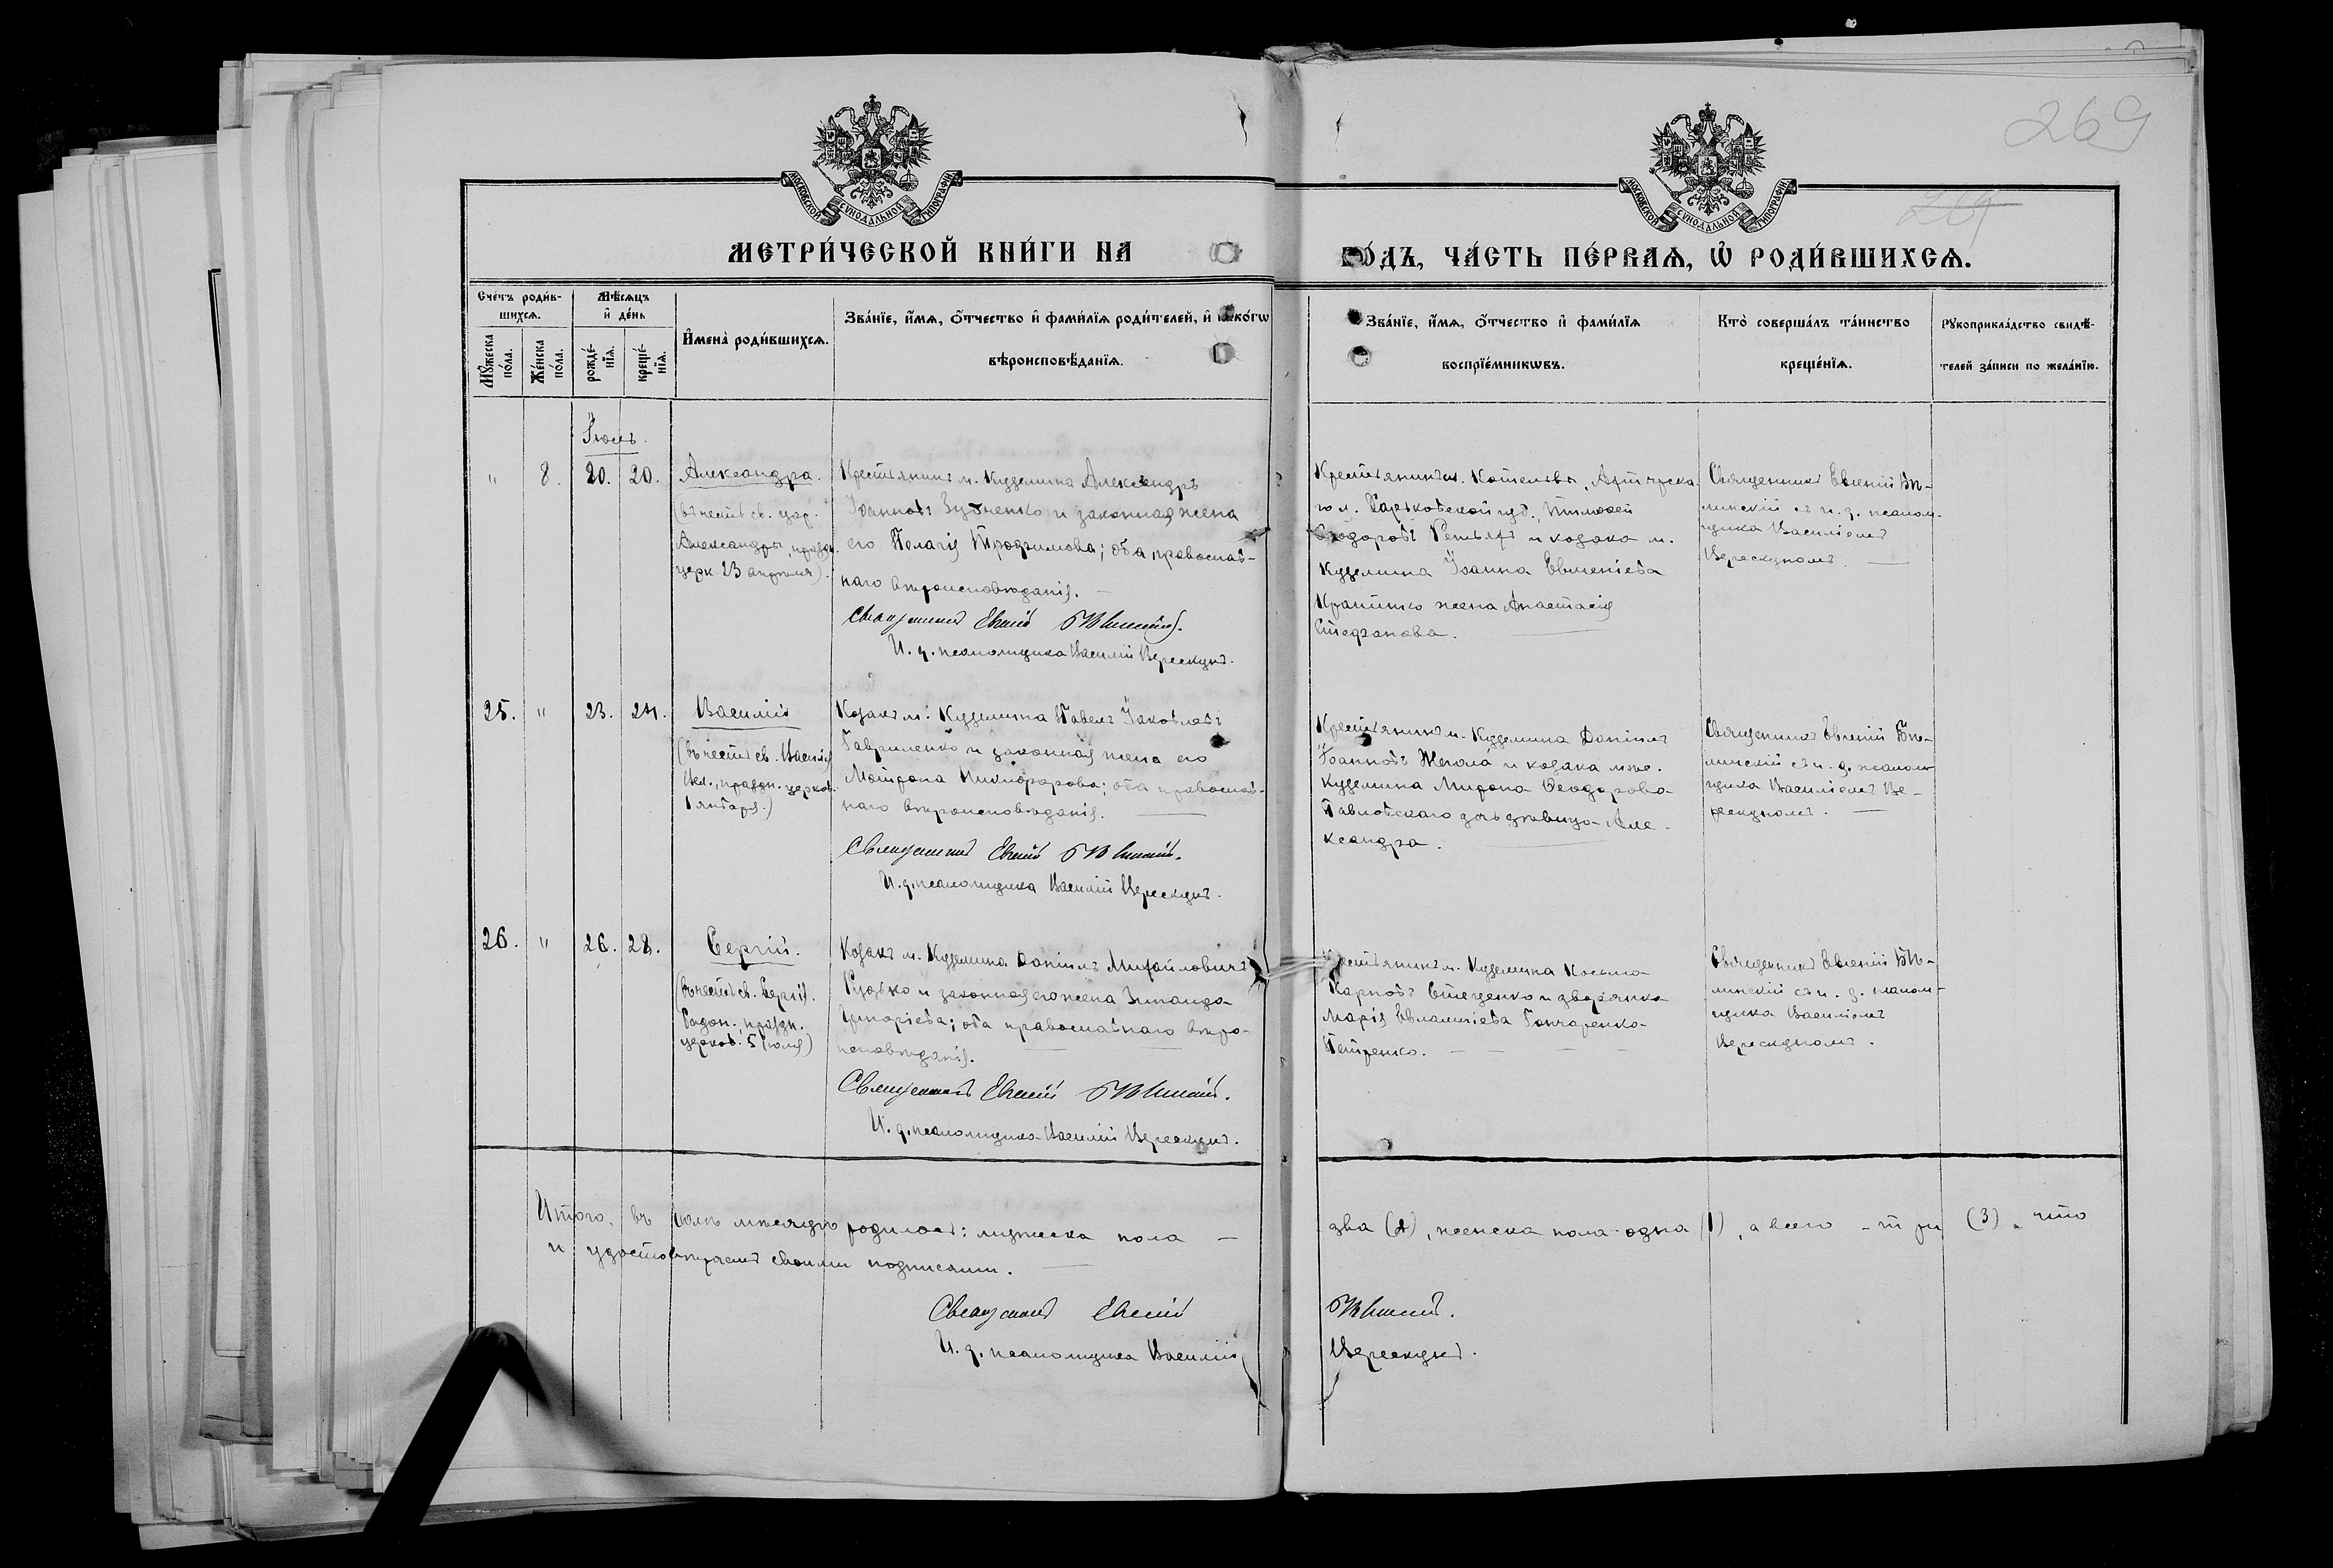 269
МОСКОВСКОЙ СУНОДАЛЬНОЙ ТИПОГРАФІИ
МОСКОВСКОЙ СУНОДАЛЬНОЙ ТИПОГРАФІИ
МЕТРИ́ЧЕСКОЙ КНИ́ГИ НА
ГО́ДЪ, ЧА́СТЬ ПЕ́РВАѦ, Ѡ҆ РОДИ́ВШИХСѦ.
Сче́тъ роди́в-
шихсѧ.
Мꙋ́жеска по́ла.
Же́нска по́ла.
Мѣ́сѧцъ и҆ де́нь
рожде́-нїѧ.
креще́-нїѧ.
И҆мена̀ роди́вшихсѧ.
Зва́нїе, и҆́мѧ, ѻ҆́тчество и҆ фами́лїѧ роди́телей, и҆ како́гѡ
вѣроисповѣ́данїѧ.
Зва́нїе, и҆́мѧ, ѻ҆́тчество и҆ фами́лїѧ
воспрїе́мникѡвъ.
Кто̀ соверша́лъ та́инство
креще́нїѧ.
Рꙋкоприкла́дство свидѣ́-
телей за́писи по жела́нїю.
Іюль.
" 8. 20. 20. Александра.
(въ честь св. цар.
Александры, праздн.
церк. 23 апрѣля).
Крестьянинъ м. Куземина Александръ
Іоанновъ Зубченко и законная жена
его Пелагія Трофимова; оба православ-
наго вѣроисповѣданія. —
Священникъ Евгеній
И. д. псаломщика Василій Верескунъ.
Крестьянинъ м. Котельвы, Ахтырска-
го у. Харьковской губ., Тимофей
Ѳеодоровъ и козака м.
Куземина Іоанна Евменіева
жена Анастасія
Стефанова.
Священникъ Евгеній Бѣ-
линскій съ и. д. псалом-
щика Василіемъ
Верескуномъ. —
25. " 23. 24. Василій
(въ честь св. Василія
Вел., праздн. церков.
1 января.)
Козакъ м. Куземина Павелъ Іаковлевъ
Гавриленко и законная жена его
Мотрона Никифорова; оба православ-
наго вѣроисповѣданія. —
Священникъ Евгеній
И. д. псаломщика Василій Верескунъ.
Крестьянинъ м. Куземина Даніилъ
Іоанновъ и козака мѣс.
Куземина Мирона Ѳеодорова
Павловскаго дочь дѣвица Але-
ксандра.
Священникъ Евгеній Бѣ-
линскій съ и. д. псалом-
щика Василіемъ Ве-
рескуномъ. —
26. " 26. 28. Сергій.
въ честь св. Сергія
Радон., праздн.
церков. 5 іюля)
Козакъ м. Куземина Даніилъ Михайловичъ
Рудько и законная его жена Зинаида
Григоріева; оба православнаго вѣро-
исповѣданія.
Священникъ Евгеній
И. д. псаломщика Василій Верескунъ.
Крестьянинъ м. Куземина Косьма
Карповъ Стеценко и дворянка
Марія Евлампіева Гончаренко-
Петренко.
Священникъ Евгеній Бѣ-
линскій съ и. д. псалом-
щика Василіемъ
Верескуномъ.
Итого, въ іюлѣ мѣсяцѣ родилось: мужеска пола — два (2), женска пола - одна (1), а всего - три (3), что
и удостовѣряемъ своими подписями.
Священникъ Евгеній
И. д. псаломщика Василій Верескунъ.